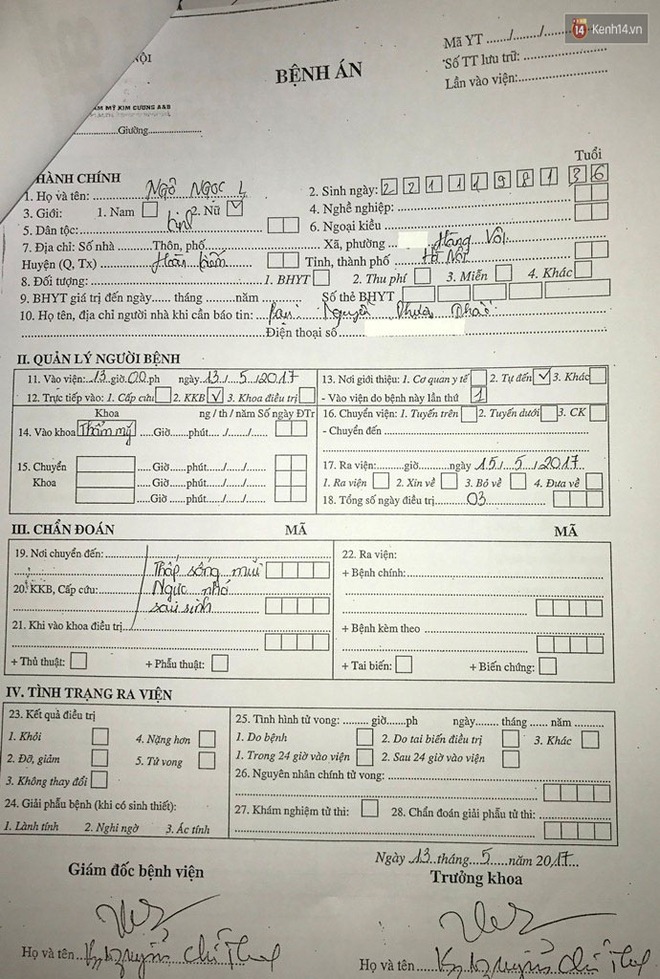 Kenh14.vn
NỘI
Mã YT ....../......../........
BỆNH ÁN
Số TT lưu trữ:
Lần vào viện:
MỸ KIM CƯƠNG A&B
Giường
HÀNH CHÍNH
Tuổi
1. Họ và tên: NGÔ NGỌC L
2. Sinh ngày: 2 2 1 1 1 9 8 1 3 6
3. Giới: 1. Nam 2. Nữ ✓
4. Nghề nghiệp:
5. Dân tộc: Kinh
6. Ngoại kiều
7. Địa chỉ: Số nhà ........ Thôn, phố
Xã, phường Hàng Vôi
Huyện (Q, Tx) Hoàn Kiếm
Tỉnh, thành phố Hà Nội
8. Đối tượng: 1. BHYT 2. Thu phí 3. Miễn 4. Khác
9. BHYT giá trị đến ngày..... tháng ......năm
Số thẻ BHYT
10. Họ tên, địa chỉ người nhà khi cần báo tin: Nguyễn
Điện thoại số
II. QUẢN LÝ NGƯỜI BỆNH
11. Vào viện: 13 giờ 00 ph ngày 13/5/2017
12. Trực tiếp vào: 1. Cấp cứu 2. KKB ✓ 3. Khoa điều trị
13. Nơi giới thiệu: 1. Cơ quan y tế 2. Tự đến ✓ 3. Khác
- Vào viện do bệnh này lần thứ 1
Khoa ng / th / năm Số ngày ĐTr
14. Vào khoa Thẩm mỹ ....Giờ......phút..../...../......
15. Chuyển ..... Giờ......phút..../...../......
Khoa .....Giờ......phút..../...../......
.....Giờ ......phút..../...../......
16. Chuyển viện: 1. Tuyến trên 2. Tuyến dưới 3. CK
- Chuyển đến
17. Ra viện:..........giờ..........ngày 15/5/2017
1. Ra viện 2. Xin về 3. Bỏ về 4. Đưa về
18. Tổng số ngày điều trị 03
III. CHẨN ĐOÁN MÃ
MÃ
19. Nơi chuyển đến:
Thấp sống mũi
20. KKB, Cấp cứu: Ngực nhỏ
sau sinh
21. Khi vào khoa điều trị
+ Thủ thuật: + Phẫu thuật:
22. Ra viện:
+ Bệnh chính:
+ Bệnh kèm theo
+ Tai biến: + Biến chứng:
IV. TÌNH TRẠNG RA VIỆN
23. Kết quả điều trị
1. Khỏi 4. Nặng hơn
2. Đỡ, giảm 5. Tử vong
3. Không thay đổi
24. Giải phẫu bệnh (khi có sinh thiết):
1. Lành tính 2. Nghi ngờ 3. Ác tính
25. Tình hình tử vong: ......... giờ......ph ngày........ tháng ...... năm
1. Do bệnh 2. Do tai biến điều trị 3. Khác
1. Trong 24 giờ vào viện 2. Sau 24 giờ vào viện
26. Nguyên nhân chính tử vong:
27. Khám nghiệm tử thi: 28. Chẩn đoán giải phẫu tử thi:
Ngày 13 tháng 5 năm 2017
Giám đốc bệnh viện
Trưởng khoa
Họ và tên Nguyễn
Họ và tên Nguyễn